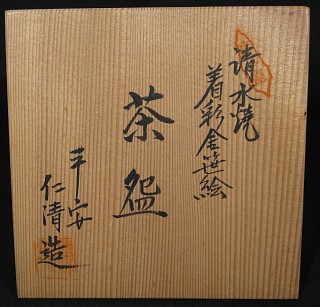 清水焼
着彩金笹絵
茶盌
平安
仁清造